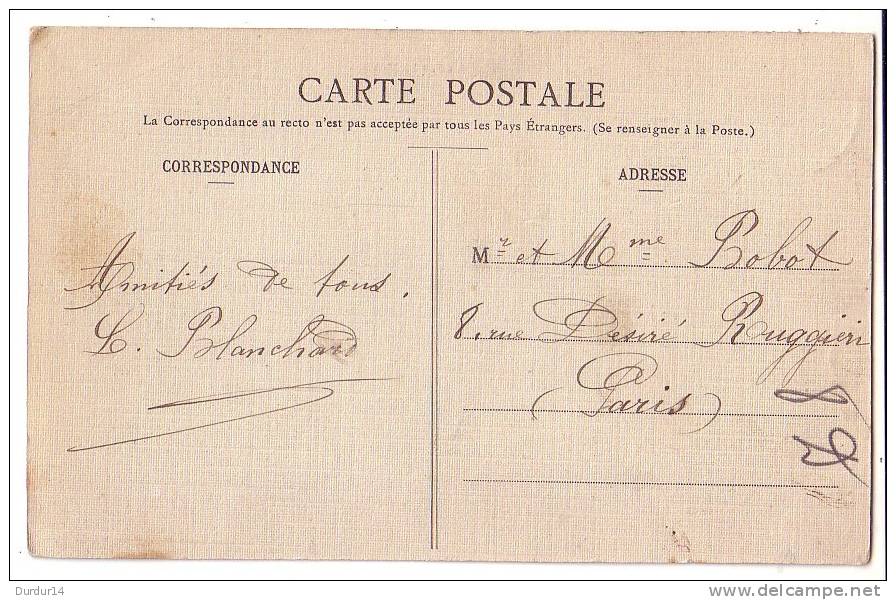 CARTE POSTALE
La Correspondance au recto n'est pas acceptée par tous les Pays Étrangers. (Se renseigner à la Poste.)
CORRESPONDANCE
Amitiés de tous.
L. Blanchard
ADRESSE
Mr et Mme Bobot
8, rue Désiré Rouggieri
(Paris)
Durdur14
www.delcampe.net